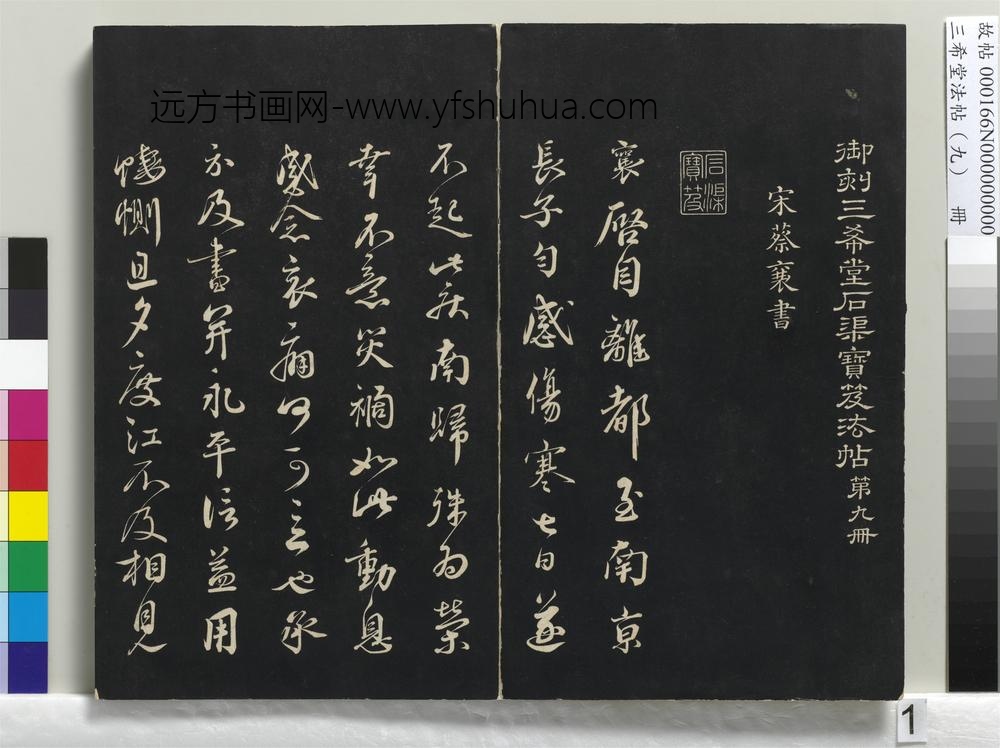 御刻三希堂石渠寶笈法帖第九冊
宋蔡襄書
石渠寶笈
襄啓自離都至南京
長子勻感傷寒七日遂
不起此疾南歸殊為榮
幸不意災禍如此動息
感念哀痛何可言也承
示及書并永平信益用
悽惻旦夕度江不及相見
远方书画网-www.yfshuhua.com
故帖 000166N000000000
三希堂法帖（九） 冊
1